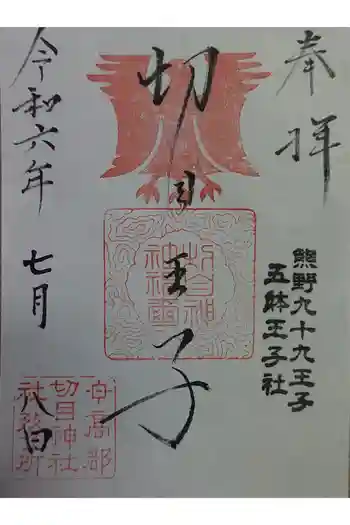 奉拝
熊野九十九王子
五躰王子社
切目王子
令和六年
七月
八日
日高郡
切目神社
社務所